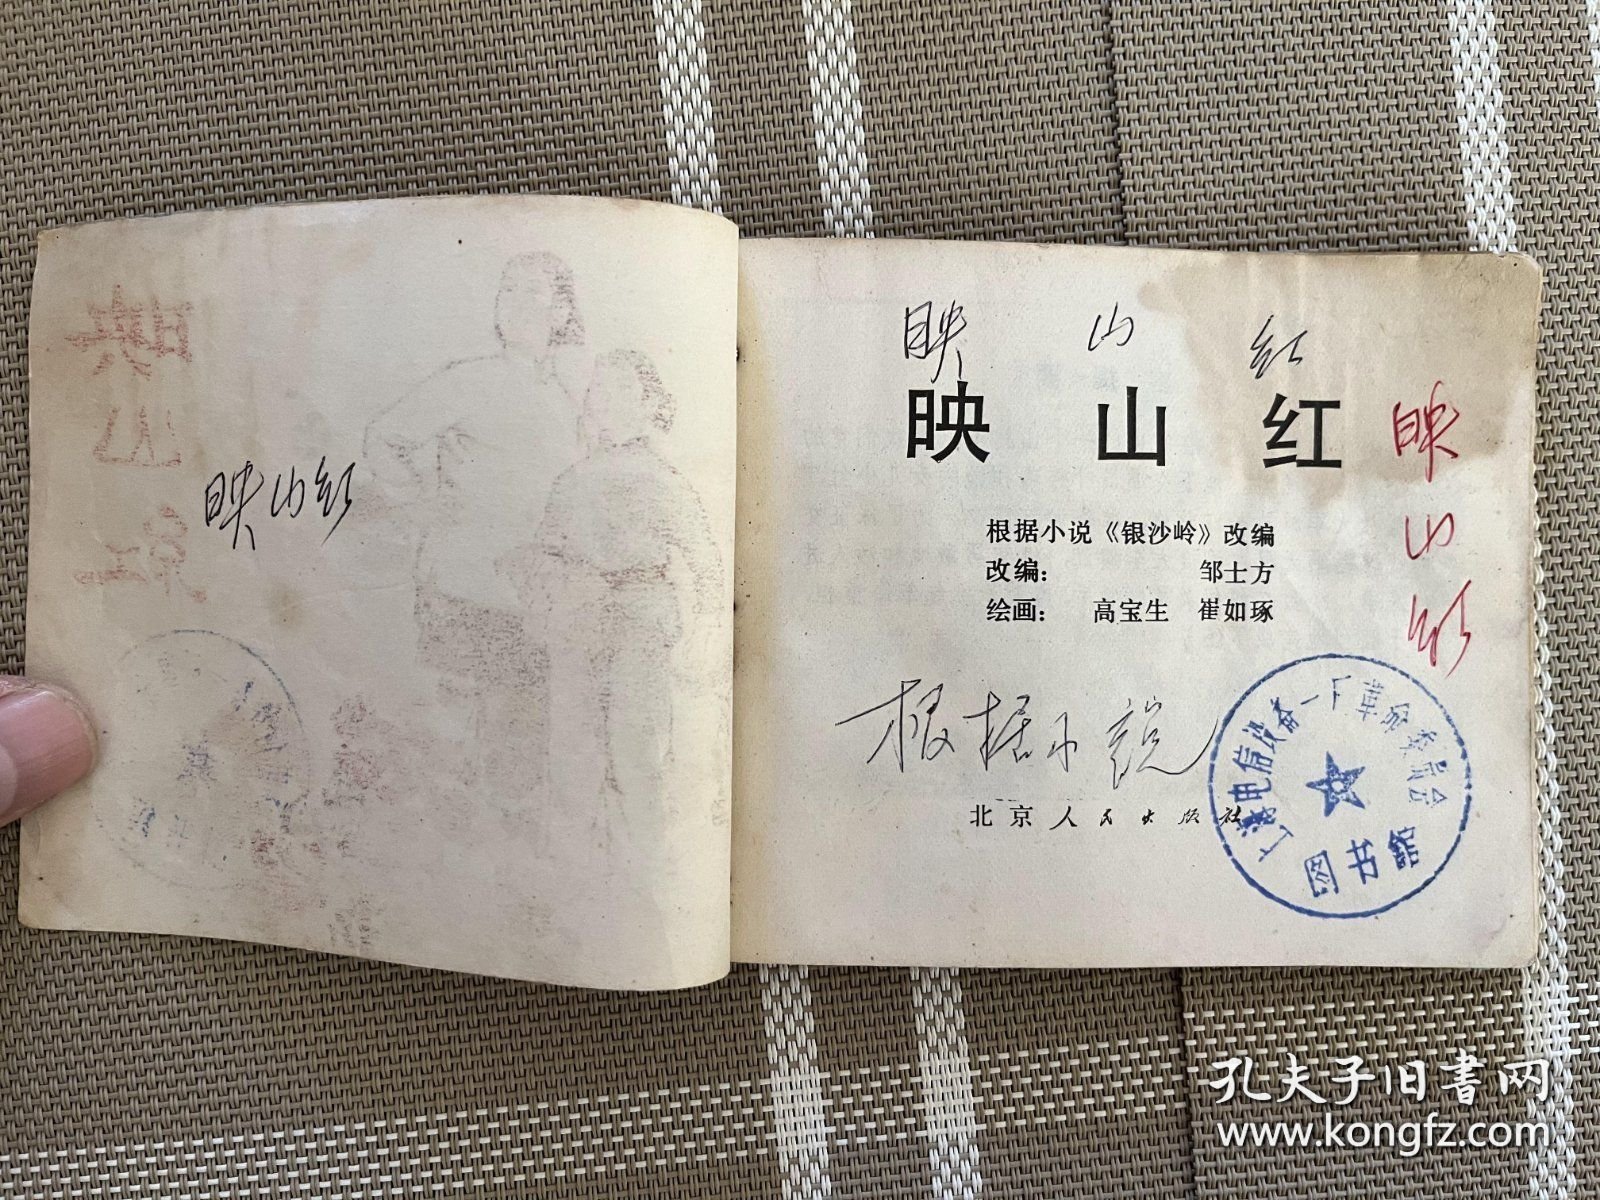 映山红
映山红
映山红
映山红
根据小说《银沙岭》改编
改编： 邹士方
绘画： 高宝生 崔如琢
根据小説
北京人民出版社
上海电信设备一厂革命委员会
图书馆
孔夫子旧書网
www.kongfz.com